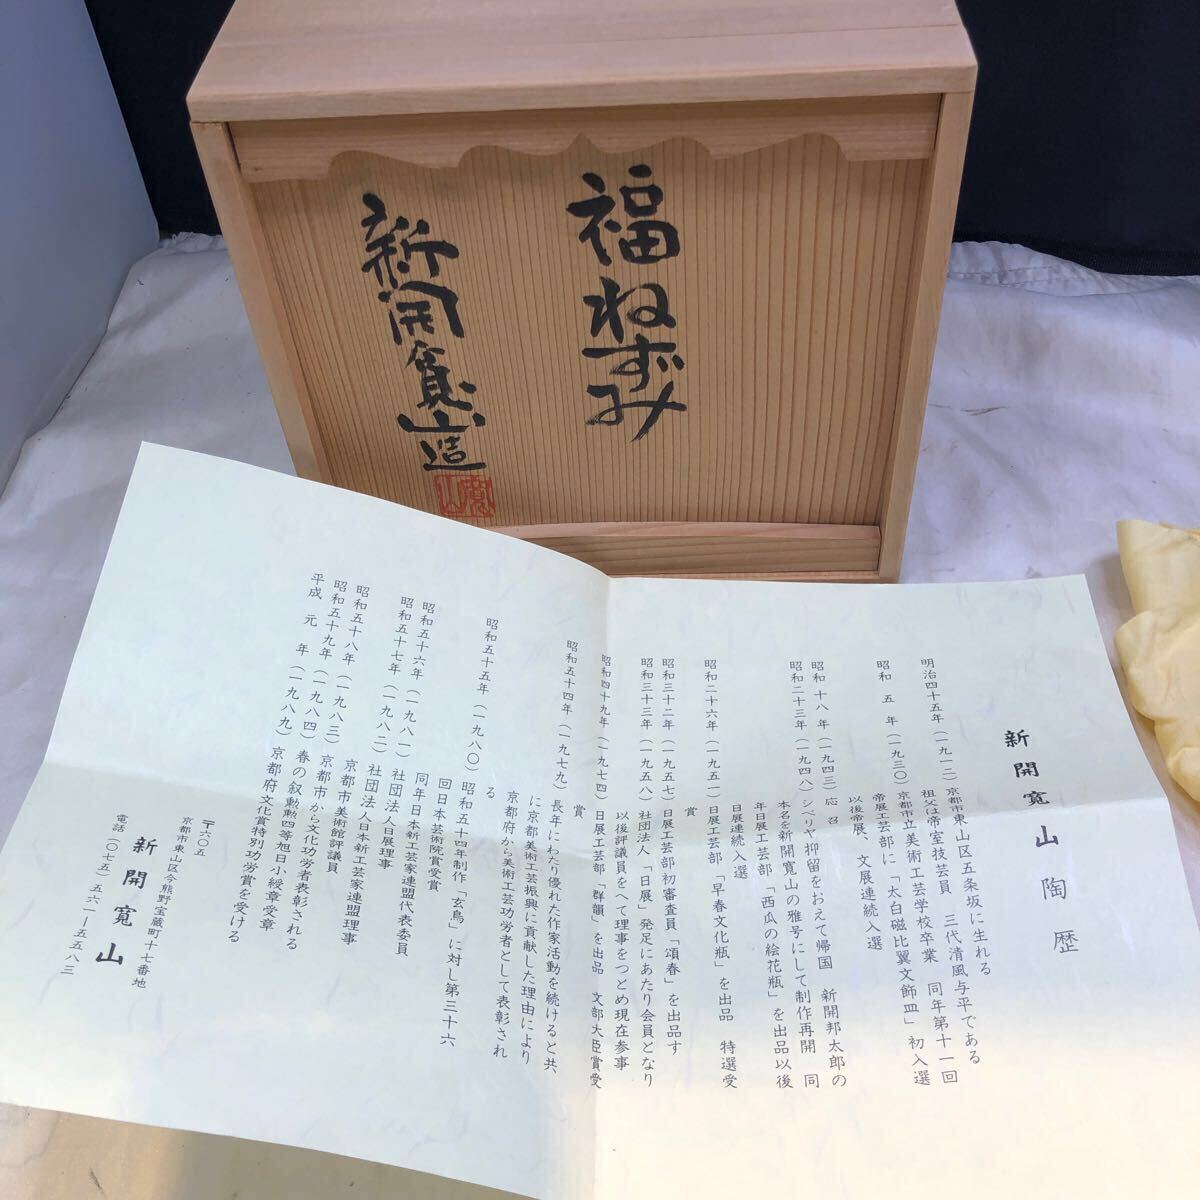 福ねずみ
新開寛山造
寛山
新開寛山陶歴
明治四十五年(一九一二)京都市東山区五条坂に生れる
祖父は帝室技芸員 三代清風与平である
昭和 五 年(一九三〇)京都市立美術工芸学校卒業 同年第十一回
帝展工芸部に「太白磁比翼文飾皿」初入選
以後帝展、文展連続入選
昭和 十八 年(一九四三)応 召
昭和二十三年(一九四八)シベリヤ抑留をおえて帰国 新開邦太郎の
本名を新開寛山の雅号にして制作再開 同
年日展工芸部「西瓜の絵花瓶」を出品以後
日展連続入選
昭和二十六年(一九五一)日展工芸部「早春文化瓶」を出品 特選受
賞
昭和三十二年(一九五七)日展工芸部初審査員「頌春」を出品す
昭和三十三年(一九五八)社団法人「日展」発足にあたり会員となり
以後評議員をへて理事をつとめ現在参事
昭和四十九年(一九七四)日展工芸部「群韻」を出品 文部大臣賞受
賞
昭和五十四年(一九七九)長年にわたり優れた作家活動を続けると共
に京都美術工芸振興に貢献した理由により
京都府から美術工芸功労者として表彰され
る
昭和五十五年(一九八〇)昭和五十四年制作「玄鳥」に対し第三十六
回日本芸術院賞受賞
同年日本新工芸家連盟代表委員
昭和五十六年(一九八一)社団法人日展理事
昭和五十七年(一九八二)社団法人日本新工芸家連盟理事
京都市美術館評議員
昭和五十八年(一九八三)京都市から文化功労者表彰される
昭和五十九年(一九八四)春の叙勲勲四等旭日小綬章受章
平成 元 年(一九八九)京都府文化賞特別功労賞を受ける
〒六〇五
京都市東山区今熊野宝蔵町十七番地
新開寛山
電話(〇七五)五六一-五五八三